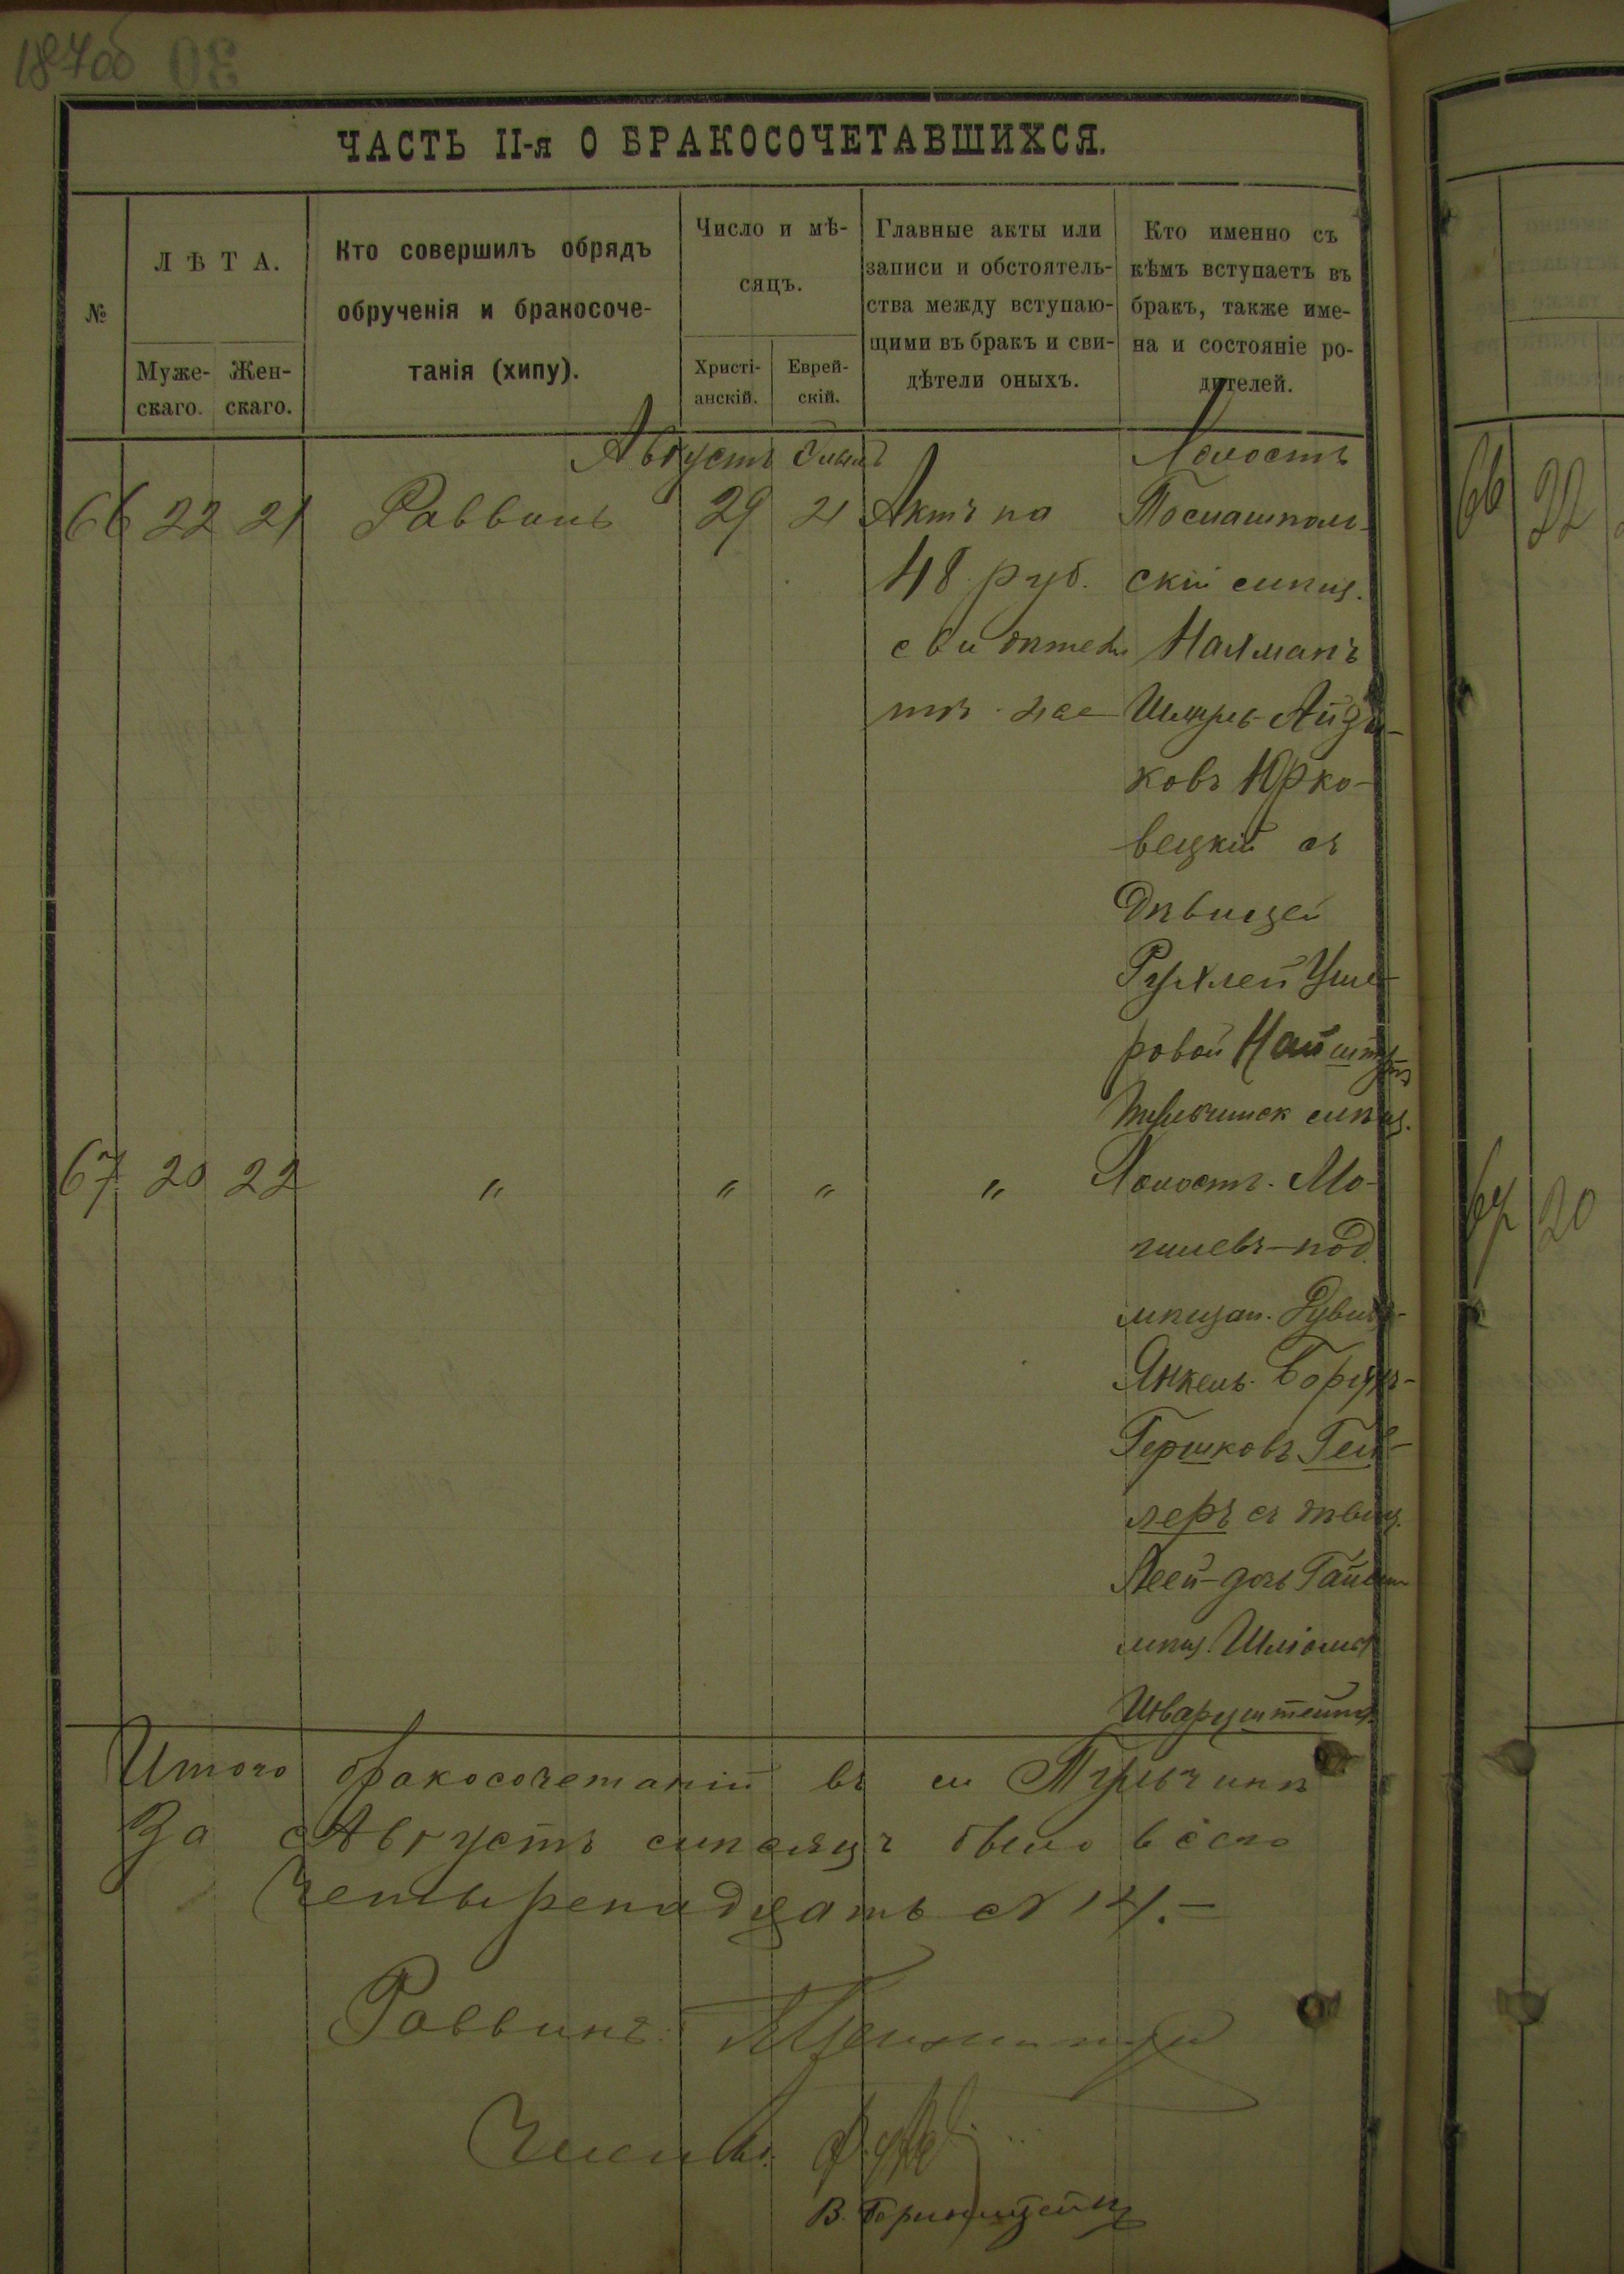 187об
30
ЧАСТЬ II-я О БРАКОСОЧЕТАВШИХСЯ.
№
ЛѢТА.
Муже-
скаго.
Жен-
скаго.
Кто совершилъ обрядъ
обрученія и бракосоче-
танія (хипу).
Число и мѣ-
сяцъ.
Христі-
анскій.
Еврей-
скій.
Главные акты или
записи и обстоятель-
ства между вступаю-
щими въ бракъ и сви-
дѣтели оныхъ.
Кто именно съ
кѣмъ вступаетъ въ
бракъ, также име-
на и состояніе ро-
дителей.
Августъ
66 22 21 Раввинъ 29 21
Актъ на
48 руб.
свидѣтели
Холостъ
Томашполь-
скій мѣщ.
Нахманъ
Шмуль-Айзи-
ковъ Юрко-
вецкій съ
дѣвицей
Рухлей Уше-
ровой
Тульчинск мѣщ.
67 20 22 " " " "
Холост. Мо-
гилевъ-под
мѣщан. Рувинъ-
Янкель-Борухъ-
Гершковъ Гел-
леръ съ дѣвиц.
Леей-дочь Гайсин
мѣщ. Шліомы
Шварцштейна.
Итого бракосочетаній въ м Тульчинѣ
За Августъ мѣсяцъ было всего
Четырнадцать № 14.-
Раввинъ
Члены:
66 22
67 20